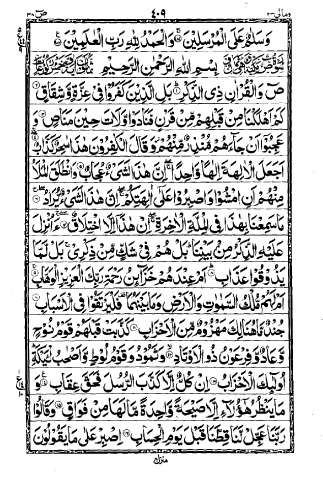 ومالی ٢٣ ٤٠٩ ص ٣٨
وَسَلٰمٌ عَلَى الْمُرْسَلِيْنَ وَالْحَمْدُ لِلّٰهِ رَبِّ الْعٰلَمِيْنَ
بِسْمِ اللّٰهِ الرَّحْمٰنِ الرَّحِيْمِ
صٓ وَالْقُرْاٰنِ ذِى الذِّكْرِ بَلِ الَّذِيْنَ كَفَرُوْا فِىْ عِزَّةٍ وَّشِقَاقٍ
كَمْ اَهْلَكْنَا مِنْ قَبْلِهِمْ مِّنْ قَرْنٍ فَنَادَوْا وَّلَاتَ حِيْنَ مَنَاصٍ وَ
عَجِبُوْٓا اَنْ جَآءَهُمْ مُّنْذِرٌ مِّنْهُمْ وَقَالَ الْكٰفِرُوْنَ هٰذَا سٰحِرٌ كَذَّابٌ
اَجَعَلَ الْاٰلِهَةَ اِلٰهًا وَّاحِدًا اِنَّ هٰذَا لَشَىْءٌ عُجَابٌ وَانْطَلَقَ الْمَلَاُ
مِنْهُمْ اَنِ امْشُوْا وَاصْبِرُوْا عَلٰٓى اٰلِهَتِكُمْ اِنَّ هٰذَا لَشَىْءٌ يُّرَادُ
مَا سَمِعْنَا بِهٰذَا فِى الْمِلَّةِ الْاٰخِرَةِ اِنْ هٰذَآ اِلَّا اخْتِلَاقٌ ءَاُنْزِلَ
عَلَيْهِ الذِّكْرُ مِنْۢ بَيْنِنَا بَلْ هُمْ فِىْ شَكٍّ مِّنْ ذِكْرِىْ بَلْ لَّمَّا
يَذُوْقُوْا عَذَابِ اَمْ عِنْدَهُمْ خَزَآئِنُ رَحْمَةِ رَبِّكَ الْعَزِيْزِ الْوَهَّابِ
اَمْ لَهُمْ مُّلْكُ السَّمٰوٰتِ وَالْاَرْضِ وَمَا بَيْنَهُمَا فَلْيَرْتَقُوْا فِى الْاَسْبَابِ
جُنْدٌ مَّا هُنَالِكَ مَهْزُوْمٌ مِّنَ الْاَحْزَابِ كَذَّبَتْ قَبْلَهُمْ قَوْمُ نُوْحٍ
وَّعَادٌ وَّفِرْعَوْنُ ذُو الْاَوْتَادِ وَثَمُوْدُ وَقَوْمُ لُوْطٍ وَّاَصْحٰبُ لْئَيْكَةِ
اُولٰٓئِكَ الْاَحْزَابُ اِنْ كُلٌّ اِلَّا كَذَّبَ الرُّسُلَ فَحَقَّ عِقَابِ وَ
مَا يَنْظُرُ هٰٓؤُلَآءِ اِلَّا صَيْحَةً وَّاحِدَةً مَّا لَهَا مِنْ فَوَاقٍ وَقَالُوْا
رَبَّنَا عَجِّلْ لَّنَا قِطَّنَا قَبْلَ يَوْمِ الْحِسَابِ اِصْبِرْ عَلٰى مَا يَقُوْلُوْنَ
منزل